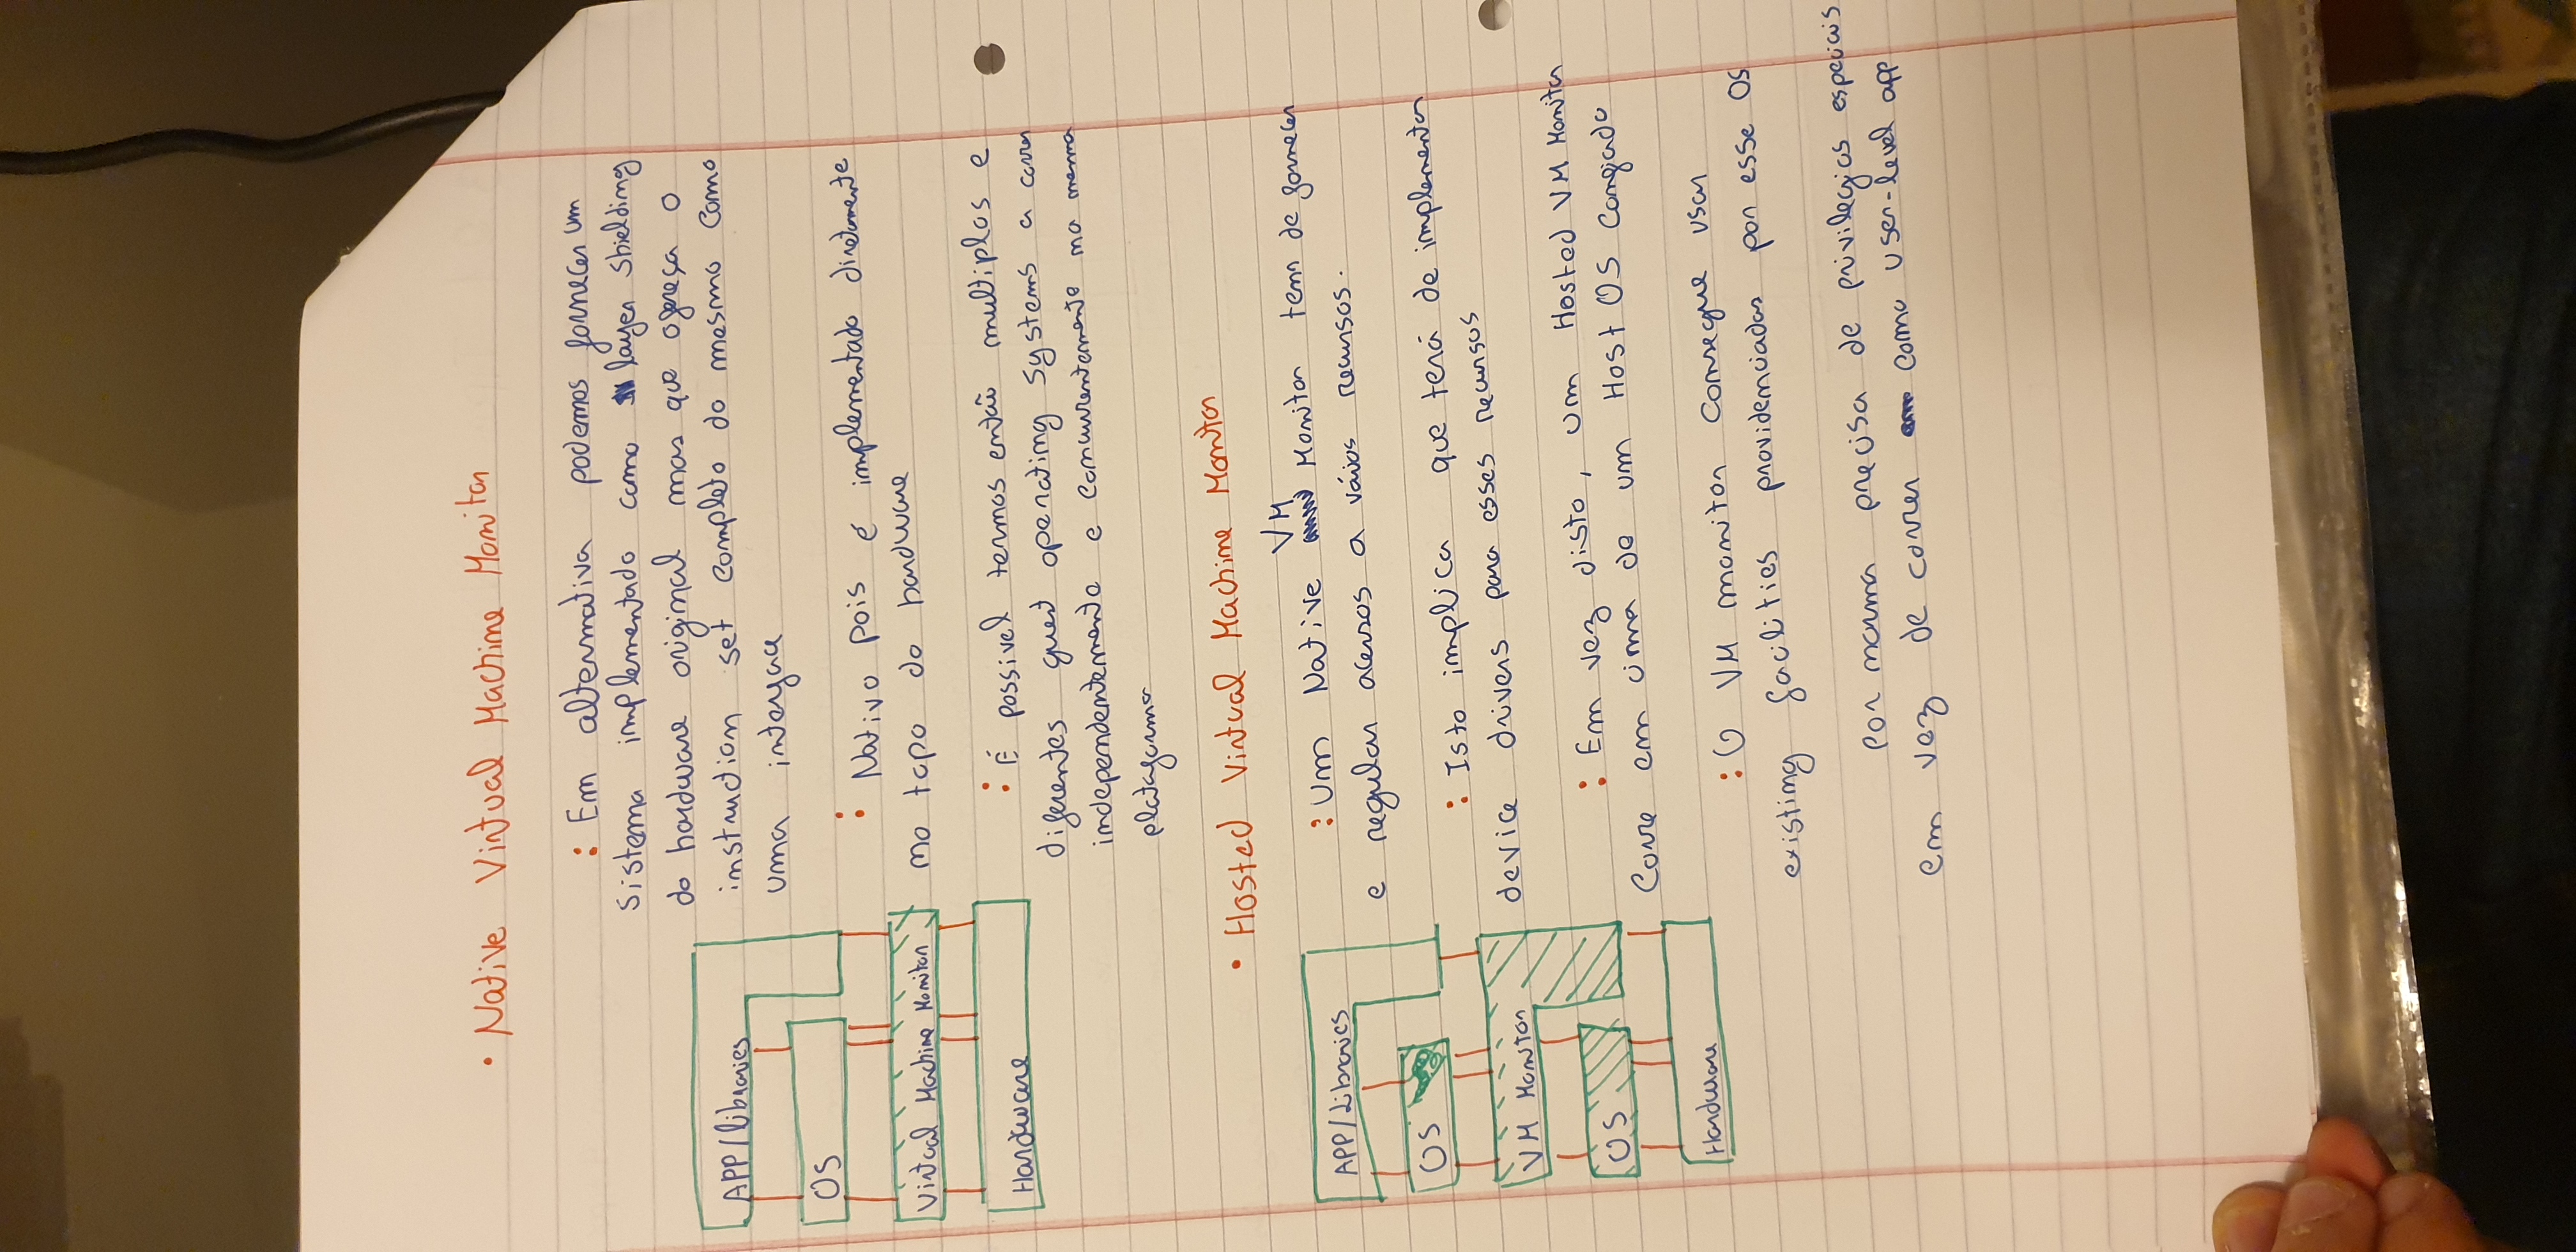 • Native Virtual Machine Monitor
: Em alternativa podemos fornecer um
sistema implementado como layer shielding
do hardware original mas que ofereça o
instruction set completo do mesmo como
uma interface
APP/libraries
OS
Virtual Machine Monitor
Hardware
: Nativo pois é implementado diretamente
no topo do hardware
: É possivel termos então multiplos e
diferentes guest operating systems a correr
independentemente e concurrentemente na mesma
plataforma
• Hosted Virtual Machine Monitor
: Um Native VM Monitor tem de fornecer
e regular acessos a vários recursos.
APP/Libraries
OS
VM Monitor
OS
Hardware
: Isto implica que terá de implementar
device drivers para esses recursos
: Em vez disto, um Hosted VM Monitor
corre em cima de um Host OS confiado
: O VM monitor consegue usar
existing facilities providenciadas por esse OS
por norma precisa de privilegios especiais
em vez de correr como user-level app